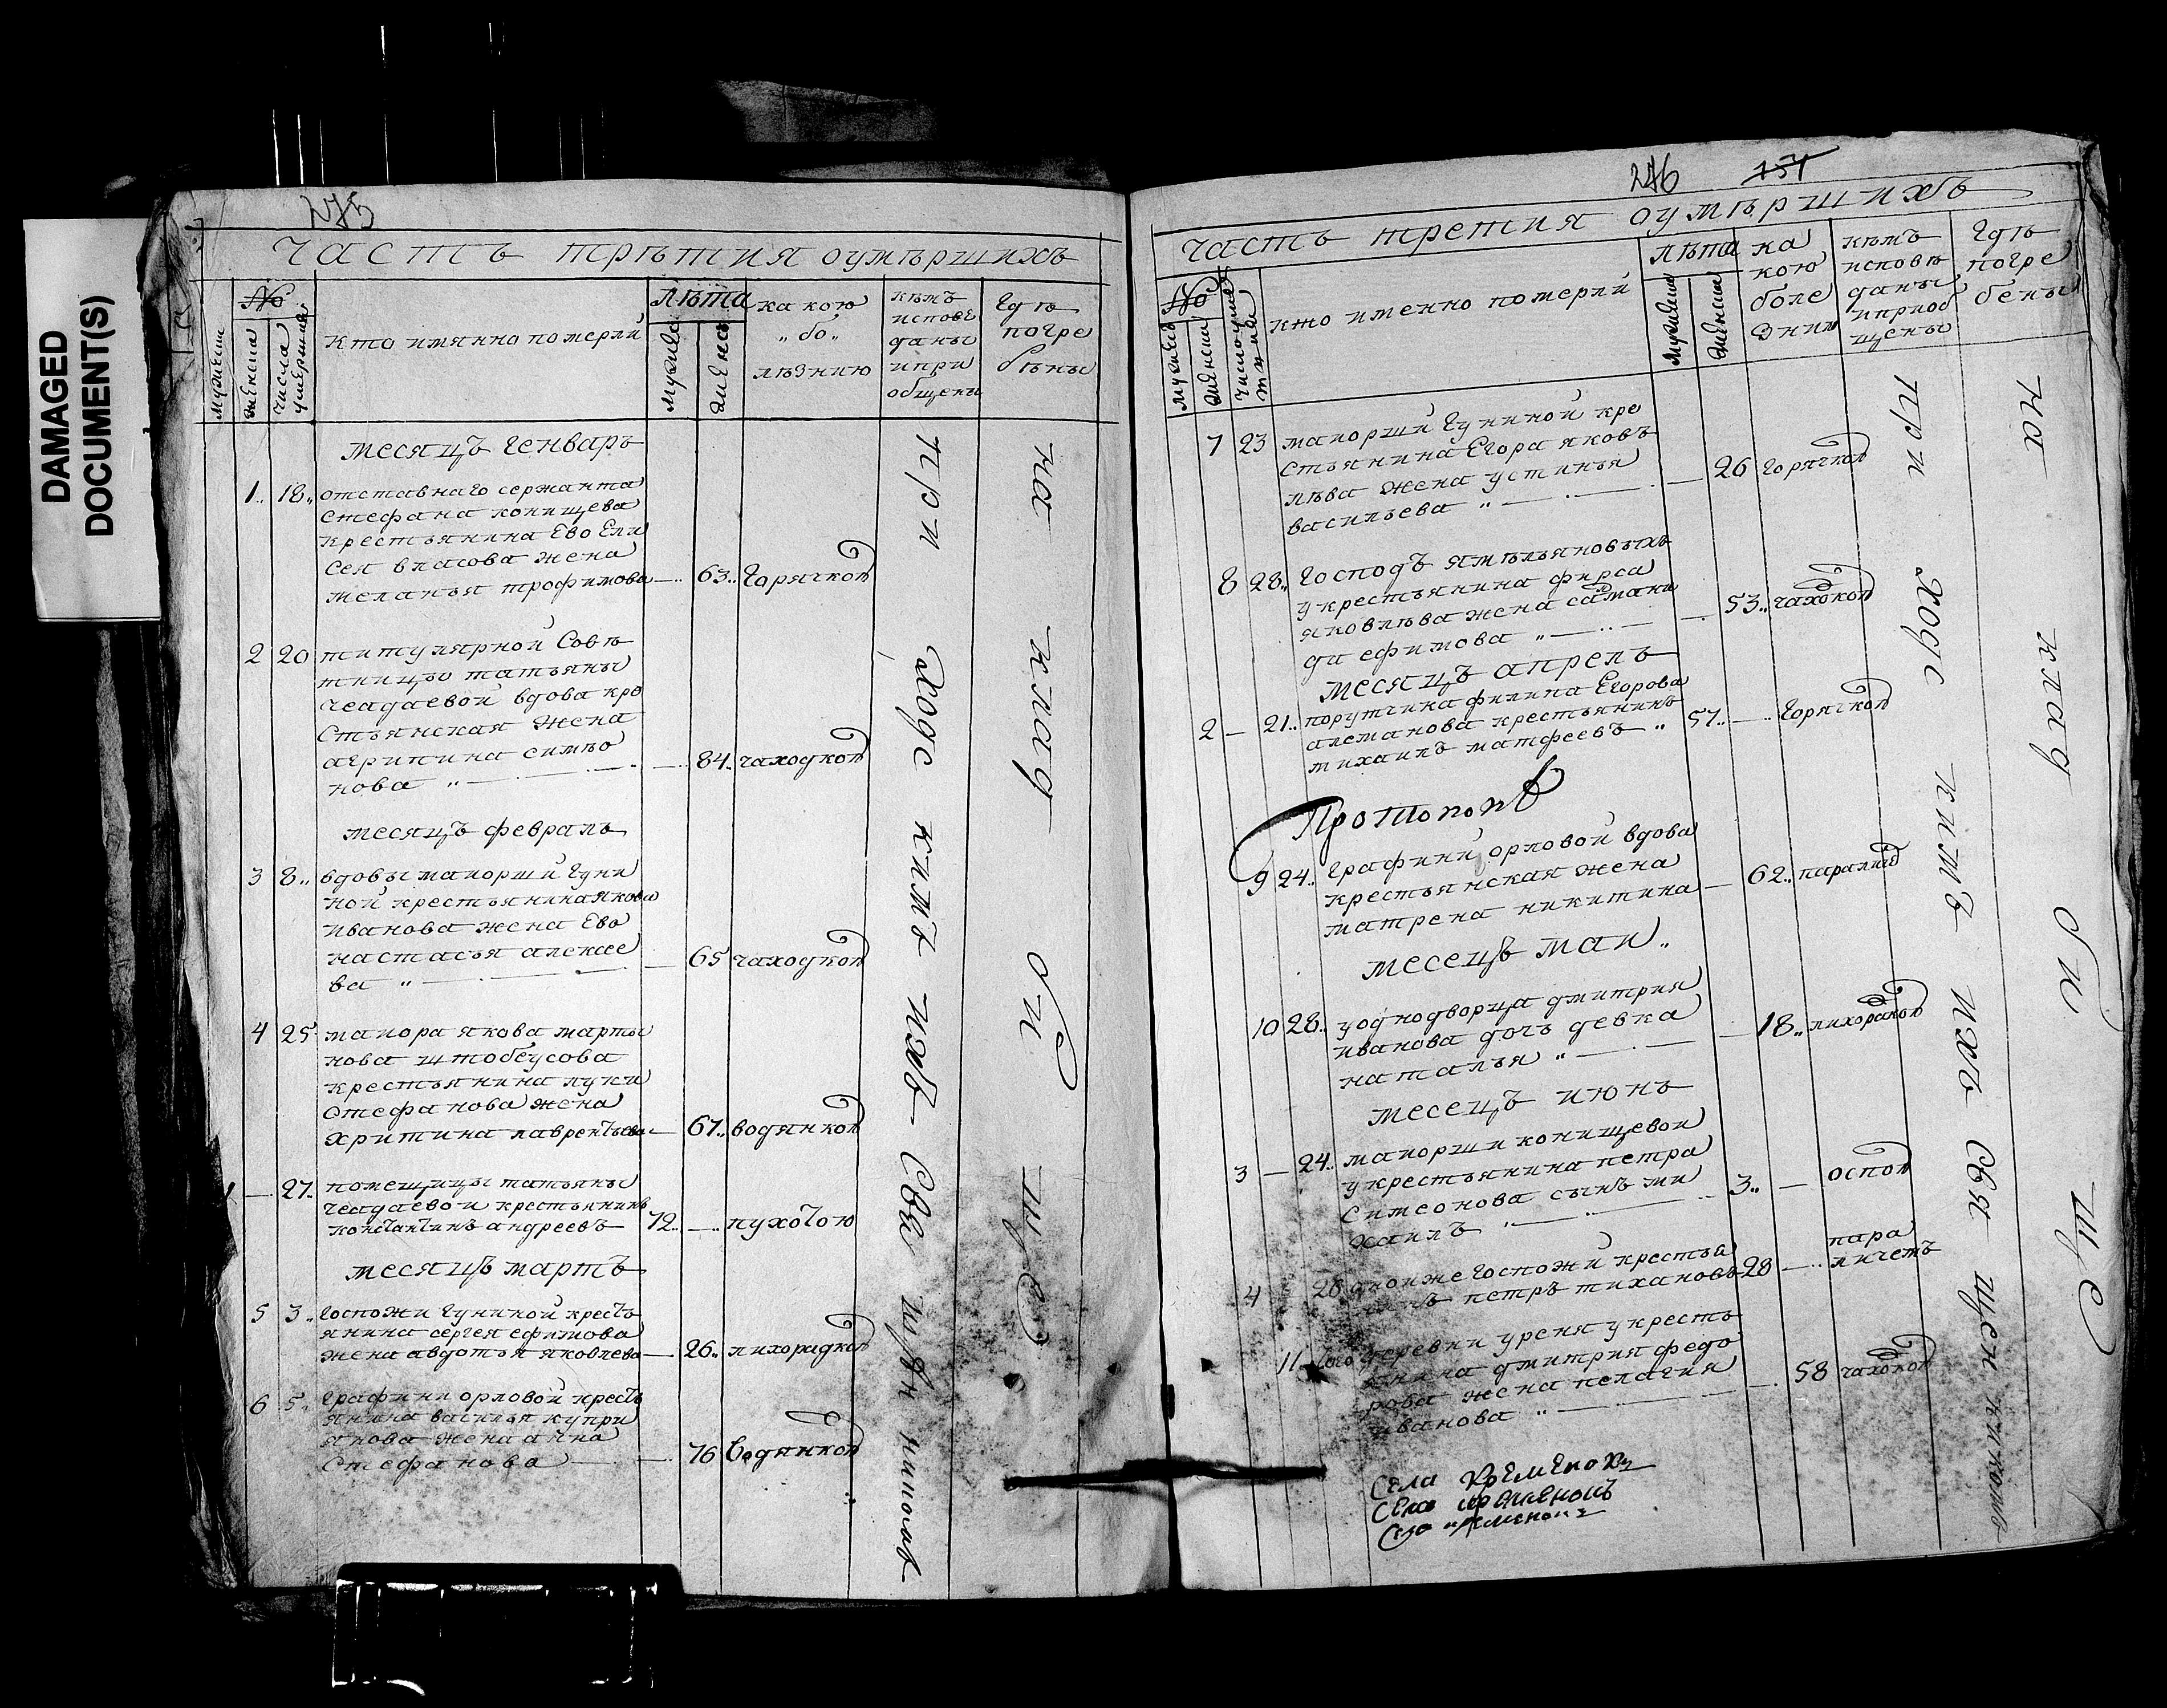 DAMAGED
DOCUMENT(S)
275
часть трѣтия оумѣршихъ
№
мужеска
женска
числа
умертвия
кто имянно померли
лѣта
мужеска
женска
какою
„ бо „
лѣзнию
кѣмъ
исповѣ
даны
ипри
общены
гдѣ
погре
бѣны
месяцъ генваръ
1.. 18.. отставнаго сержанта
стефана конищева
крестьянина ево ели
сея власова жена
меланья трофимова — 63.. горячкой
2 20 титулярной совѣ
тницы татьяны
чеадаевой вдова кре
стьянская жена
агрипина симио
нова „ — 84.. чахоткой
месяцъ февралъ
3 8.. вдовы маиорши гуни
ной крестьянина якова
иванова жена ево
настасья алексее
ва „ — 65 чахоткой
4 25 маиора якова марты
нова штобеусова
крестьянина луки
стефанова жена
христина лаврентьева — 67.. водянкой
1 — 27.. помещицы татьяны
чеадаевой крестьянинъ
константинъ андреевъ 72.. — пухотою
месяцъ мартъ
5 3.. госпожи гуниной кресть
янина сергея ефимова
жена авдотья яковлева — 26.. лихорадкой
6 5.. графини орловой кресть
янина василья купри
янова жена анна
стефанова — 76 водянкой
при ходскимъ ихъ свя щен никомъ
на клад би ще
276 151
часть третия оумѣршихъ
№
мужеска
женска
кто именно померли
лѣта
мужеска
женска
ка
кою
боле
знию
кѣмъ
исповѣ
даны
иприоб
щены
гдѣ
погре
бены
7 23 маиорши гуниной кре
стьянина егора яковъ
лѣва жена устинья
васильева „ — 26 горячкой
8 28.. господъ ямѣльяновыхъ
укрестьянина фирса
яковлѣва жена саломани
да ефимова „ — 53.. чахоткой
месяцъ апрель
2 — 21.. порутчика филипа егорова
алеманова крестьянинъ
михаилъ матфеевъ „ 57.. — горячкой
Протопопъ
9 24.. графини орловой вдова
крестьянская жена
матрена никитина — 62.. паралич
месецъ маи..
10 28.. уоднодворца дмитрия
иванова дочь девка
наталья „ — 18.. лихораткой
месецъ июнь
3 — 24.. маиорши конищевои
укрестьянина петра
симеонова сынъ ми
хаилъ „ — 3.. — оспой
4 28 тоиже госпожи крестья
нинъ петръ тихановъ 28 — пара
личемъ
11 деревни уреня укресть
янина дмитрия федо
рова жена пелагия
иванова „ — 58 чахоткой
при ходс кимъ ихъ свя щен никомъ
на клад би ще
села
села